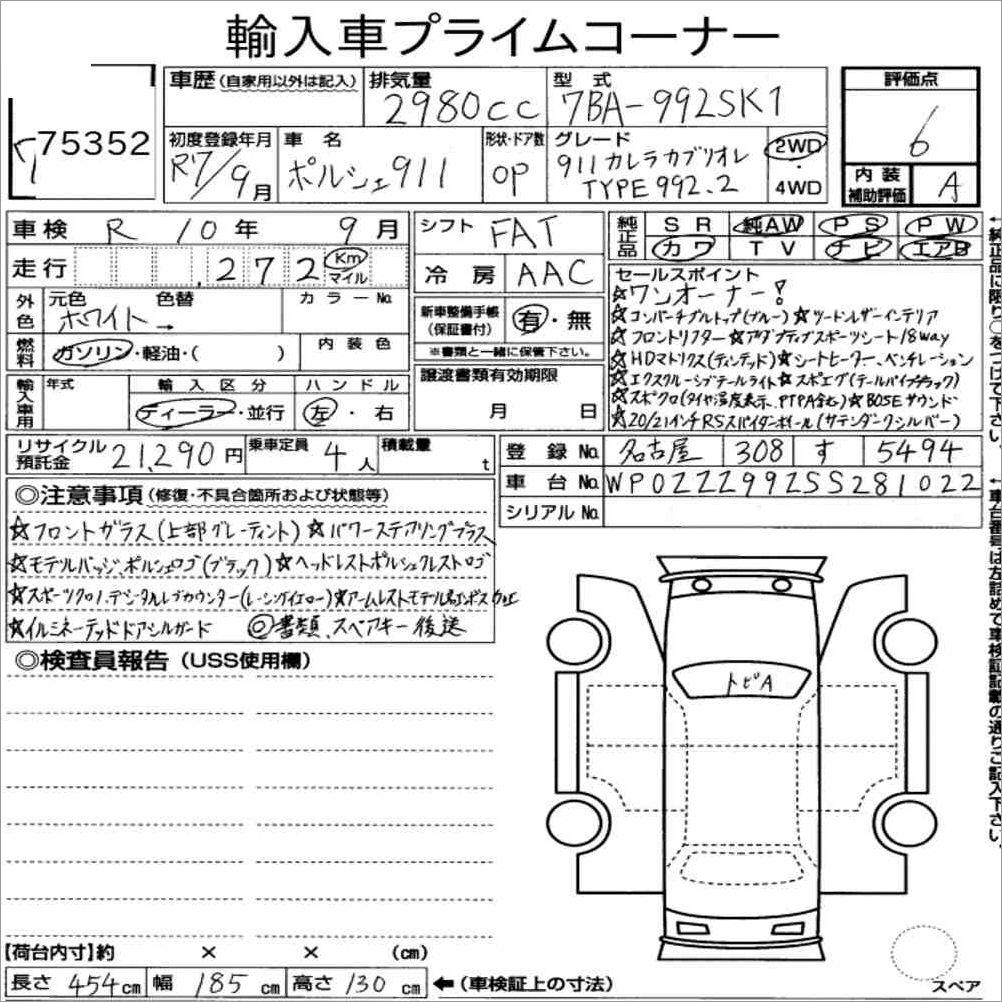 輸入車プライムコーナー
75352
車歴 (自家用以外は記入) 排気量 2980cc 型式 7BA-992SK1 評価点 6
初度登録年月 R7/9月 車名 ポルシェ911 形状・ドア数 OP グレード 911カレラカブリオレ TYPE992.2 2WD・4WD 内装補助評価 A
車検 R 10年 9月 シフト FAT 純正品 SR 純AW PS PW
カワ TV ナビ エアB
走行 272 Km マイル 冷房 AAC
外色 元色 ホワイト→ 色替 カラーNo.
燃料 ガソリン・軽油・( ) 内装色
新車整備手帳(保証書付) 有・無
※書類と一緒に保管下さい。
輸入車用 年式 輸入区分 ディーラー・並行 ハンドル 左・右
譲渡書類有効期限 月 日
セールスポイント
☆ワンオーナー!
☆コンバーチブルトップ(ブルー)☆ツートンレザーインテリア
☆フロントリフター☆アダプティブスポーツシート18way
☆HDマトリクス(ティンテッド)☆シートヒーター、ベンチレーション
☆エクスクルーシブテールライト☆スポエグ(テールパイプブラック)
☆スポクロ(タイヤ温度表示、PTPA含む)☆BOSEサウンド
☆20/21インチRSスパイダーホイール(サテンダークシルバー)
リサイクル預託金 21,290円 乗車定員 4人 積載量 t
登録No. 名古屋 308 す 5494
車台No. WP0ZZZ99ZSS281022
シリアルNo.
◎注意事項 (修復・不具合箇所および状態等)
☆フロントガラス(上部グレーティント)☆パワーステアリングプラス
☆モデルバッジ、ポルシェロゴ(ブラック)☆ヘッドレストポルシェクレストロゴ
☆スポーツクロノ、デジタルレブカウンター(レーシングイエロー)☆アームレストモデル名エンボス加工
☆イルミネーテッドドアシルガード ◎書類、スペアキー後送
◎検査員報告 (USS使用欄)
トビA
【荷台内寸】約 × × (cm)
長さ 454cm 幅 185cm 高さ 130cm ←(車検証上の寸法)
スペア
←純正品に限り○をつけて下さい。
←車台番号は左詰めで車検証記載の通りご記入下さい。